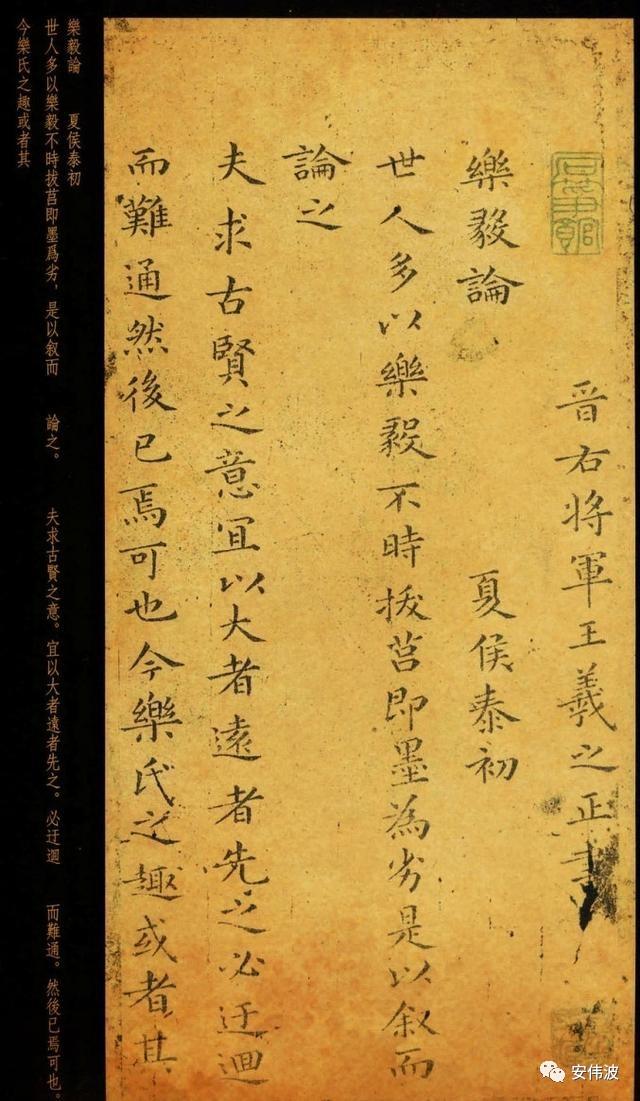 晋右將軍王羲之正書
樂毅論 夏侯泰初
世人多以樂毅不時拔莒即墨為劣是以叙而
論之
夫求古賢之意宜以大者遠者先之必迂迴
而難通然後已焉可也今樂氏之趣或者其
樂毅論 夏侯泰初
世人多以樂毅不時拔莒即墨爲劣，是以叙而 論之。 夫求古賢之意。宜以大者遠者先之。必迂迴 而難通。然後已焉可也。
今樂氏之趣或者其
安伟波